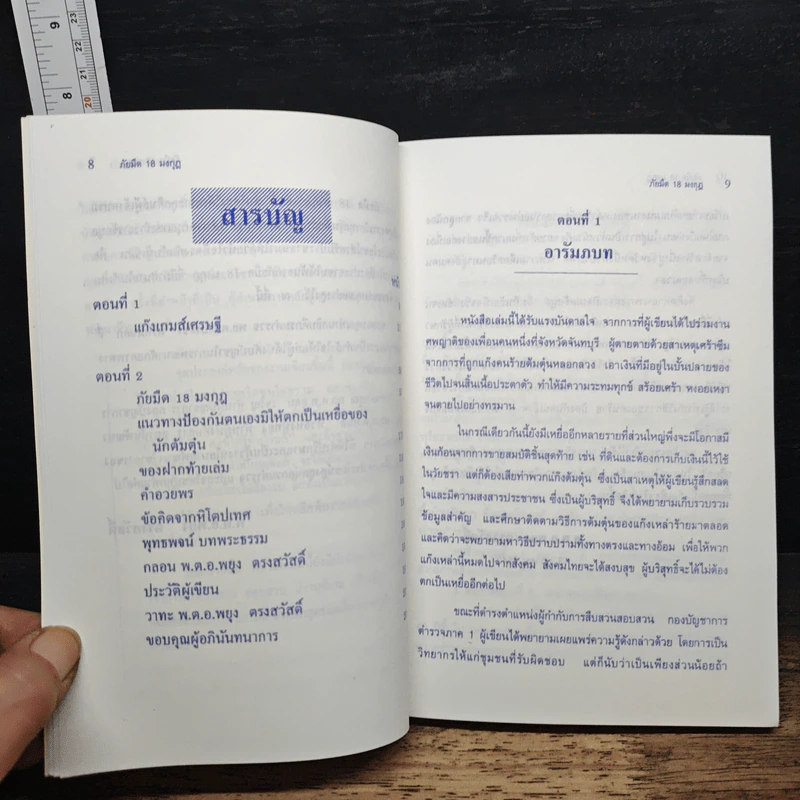 9
8
23
22
21
20
8 ภัยมืด 18 มงกุฎ
สารบัญ
ตอนที่ 1
แก๊งเกมส์เศรษฐี
ตอนที่ 2
ภัยมืด 18 มงกุฎ
แนวทางป้องกันตนเองมิให้ตกเป็นเหยื่อของ
นักต้มตุ๋น
ของฝากท้ายเล่ม
คำอวยพร
ข้อคิดจากหิโตปเทศ
พุทธพจน์ บทพระธรรม
กลอน พ.ต.อ.พยุง ตรงสวัสดิ์
ประวัติผู้เขียน
วาทะ พ.ต.อ.พยุง ตรงสวัสดิ์
ขอบคุณผู้อภินันทนาการ
ภัยมืด 18 มงกุฎ 9
ตอนที่ 1
อารัมภบท
หนังสือเล่มนี้ได้รับแรงบันดาลใจ จากการที่ผู้เขียนได้ไปร่วมงาน
ศพญาติของเพื่อนคนหนึ่งที่จังหวัดจันทบุรี ผู้ตายตายด้วยสาเหตุเศร้าซึม
จากการที่ถูกแก๊งคนร้ายต้มตุ๋นหลอกลวง เอาเงินที่มีอยู่ในบั้นปลายของ
ชีวิตไปจนสิ้นเนื้อประดาตัว ทำให้มีความระทมทุกข์ สร้อยเศร้า หงอยเหงา
จนตายไปอย่างทรมาน
ในกรณีเดียวกันนี้ยังมีเหยื่ออีกหลายรายที่ส่วนใหญ่พึ่งจะมีโอกาสมี
เงินก้อนจากการขายสมบัติชิ้นสุดท้าย เช่น ที่ดินและต้องการเก็บเงินนี้ไว้ใช้
ในวัยชรา แต่ก็ต้องเสียท่าพวกแก๊งต้มตุ๋น ซึ่งเป็นสาเหตุให้ผู้เขียนรู้สึกสลด
ใจและมีความสงสารประชาชน ซึ่งเป็นผู้บริสุทธิ์ จึงได้พยายามเก็บรวบรวม
ข้อมูลสำคัญ และศึกษาติดตามวิธีการต้มตุ๋นของแก๊งเหล่าร้ายมาตลอด
และคิดว่าจะพยายามหาวิธีปราบปรามทั้งทางตรงและทางอ้อม เพื่อให้พวก
แก๊งเหล่านี้หมดไปจากสังคม สังคมไทยจะได้สงบสุข ผู้บริสุทธิ์จะได้ไม่ต้อง
ตกเป็นเหยื่ออีกต่อไป
ขณะที่ดำรงตำแหน่งผู้กำกับการสืบสวนสอบสวน กองบัญชาการ
ตำรวจภาค 1 ผู้เขียนได้พยายามเผยแพร่ความรู้ดังกล่าวด้วย โดยการเป็น
วิทยากรให้แก่ชุมชนที่รับผิดชอบ แต่ก็นับว่าเป็นเพียงส่วนน้อยถ้า